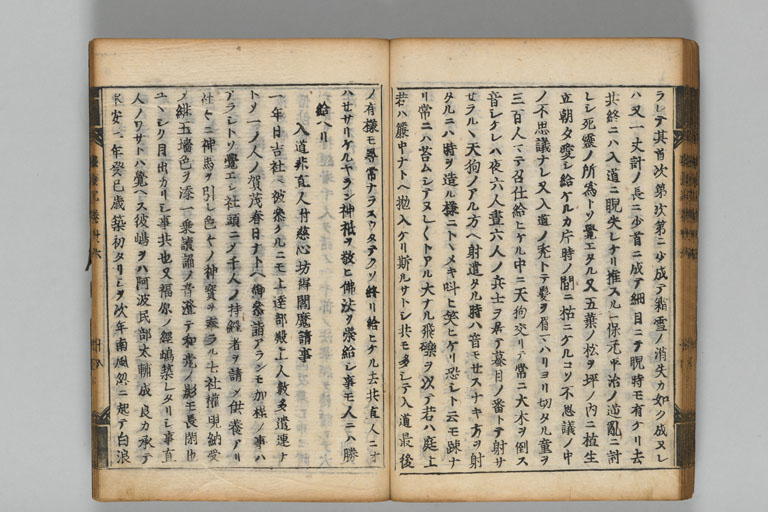 ラレテ其首次第次第ニ少成テ霜雪ノ消失カ如ク成ヌレ
ハ又一丈計ノ長ニ少首ニ成テ細目ニテ睨時モ有ケリ去
共終ニハ入道ニ睨失レケリ推スルニ保元平治ノ逆乱ニ討
レシ死霊ノ所為トソ覚エタル又五葉ノ松ヲ坪ノ内ニ植生
立朝夕愛シ給ケルカ片時ノ間ニ枯ニケルコソ不思議ノ中
ノ不思議ナレ又入道ノ禿トテ髪ヲ眉マハリヨリ切タル童ヲ
三百人マテ召仕給ヒケル中ニ天狗交リテ常ニ大木ヲ倒ス
音シケレハ夜六人昼六人ノ兵士ヲ居テ蟇目ノ番トテ射サ
セラルヽ天狗ノアル方ヘ射遣タル時ハ音モセスナキ方ヲ射
タルニハ時ヲ造ル様ニトヽメキ叫ヒ笑ヒケリ恐シト云モ疎ナ
リ常ニハ苫ムシアヌレクトアル大ナル飛礫ヲ以テ若ハ庭上
若ハ腰中ナトヘ抛入ケリ斯ルサトシ共モ多シテ入道最後
ノ有様モ尋常ナラスウタテクソ終リ給ヒケル去共直人ニオ
ハセサリケルヤラン神祇ヲ敬ヒ佛法ヲ崇給シ事モ人ニハ勝
給ヘリ
入道非直人付慈心坊得閻魔請事
一年日吉社ヘ被参ケルニモ上達部殿上人数多遣連ナ
トソ一ノ人ノ賀茂春日ナトヘ御参詣アランモ加様ノ事ハ
アラシトソ覚エシ社頭ニテ千人ノ持経者ヲ請メ供養アリ
社々ニ神馬ヲ引レ色々ノ神宝ヲ奉ラル七社権現納受
ノ緋玉墻色ヲ添一乗読誦ノ音澄テ和光ノ影モ長閑也
ユヽシク目出カリシ事共也又福原ノ経嶋築レタリシ事直
人ノワサトハ覚ヘス彼嶋ヲハ阿波民部太輔成良カ承テ
承安二年癸巳歳築初タリシヲ次年南風忽ニ起テ白浪